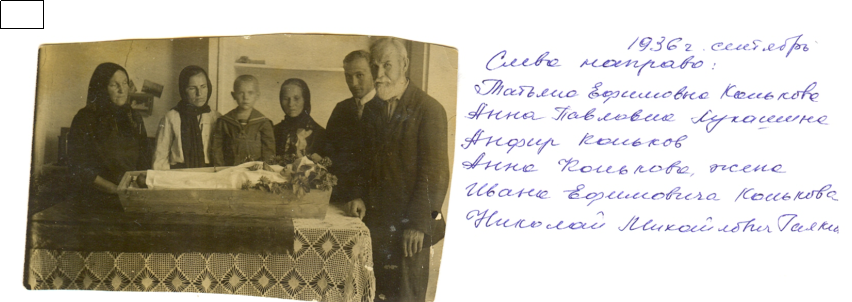 1936 г. сентябрь
Слева направо:
Татьяна Ефимовна Конькова
Анна Павловна Лукашина
Анфир Коньков
Анна Конькова, жена
Ивана Ефимовича Конькова
Николай Михайлович